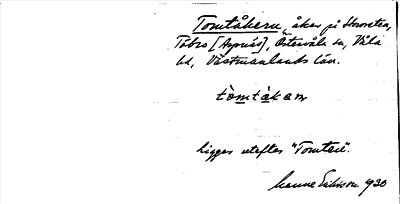 Tomtåkern, åker på Storreten,
Tåbro [Aspnäs], Östervåla sn, Våla
hd, Västmanlands län.
tòmtákɐn
ligger utefter "Tomten".
Hanna Eriksson 1930